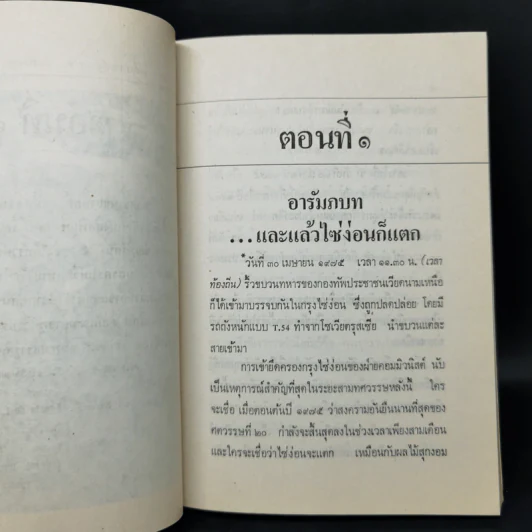 ตอนที่ ๑
อารัมภบท
...และแล้วไซ่ง่อนก็แตก
วันที่ ๓๐ เมษายน ๑๙๗๕ เวลา ๑๑.๓๐ น. (เวลา
ท้องถิ่น) ริ้วขบวนทหารของกองทัพประชาชนเวียดนามเหนือ
ก็ได้เข้ามาบรรจบกันในกรุงไซ่ง่อน ซึ่งถูกปลดปล่อย โดยมี
รถถังหนักแบบ T.54 ทำจากโซเวียตรุสเซีย นำขบวนแต่ละ
สายเข้ามา
การเข้ายึดครองกรุงไซ่ง่อนของฝ่ายคอมมิวนิสต์ นับ
เป็นเหตุการณ์สำคัญที่สุดในระยะสามทศวรรษหลังนี้ ใคร
จะเชื่อ เมื่อตอนต้นปี ๑๙๗๕ ว่าสงครามอันยืนนานที่สุดของ
ศตวรรษที่ ๒๐ กำลังจะสิ้นสุดลงในช่วงเวลาเพียงสามเดือน
และใครจะเชื่อว่าไซ่ง่อนจะแตก เหมือนกับผลไม้สุกงอม